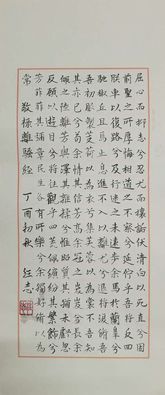 屈心而抑志兮忍尤而攘詬伏清白以死直兮固
前聖之所厚悔相道之不察兮延佇乎吾將反回
朕車以復路兮及行迷之未遠步余馬於蘭皋兮
馳椒丘且焉止息進不入以離尤兮退將復脩
吾初服製芰荷以為衣兮集芙蓉以為裳不吾知
其亦已兮苟余情其信芳高余冠之岌岌兮長余
佩之陸離芳與澤其雜糅兮惟昭質其猶未虧忽
反顧以遊目兮將往觀乎四荒佩繽紛其繁飾兮
芳菲菲其彌章民生各有所樂兮余獨好脩以為
常 敬錄離騷經 丁酉初秋 紅志